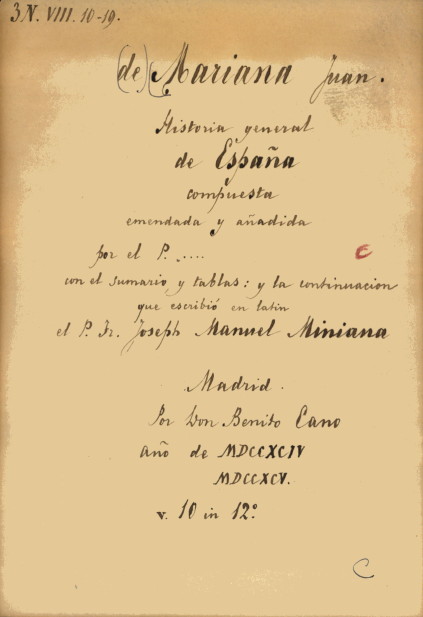 3 N. VIII. 10-19.
(de) Mariana Juan.
Historia general
de España
compuesta
emendada y añadida
por el P. ....
con el sumario y tablas: y la continuacion
que escribió en latin
el P. Fr. Joseph Manuel Miniana
Madrid.
Por Don Benito Cano
año de MDCCXCIV
MDCCXCV.
v. 10 in 12º
C